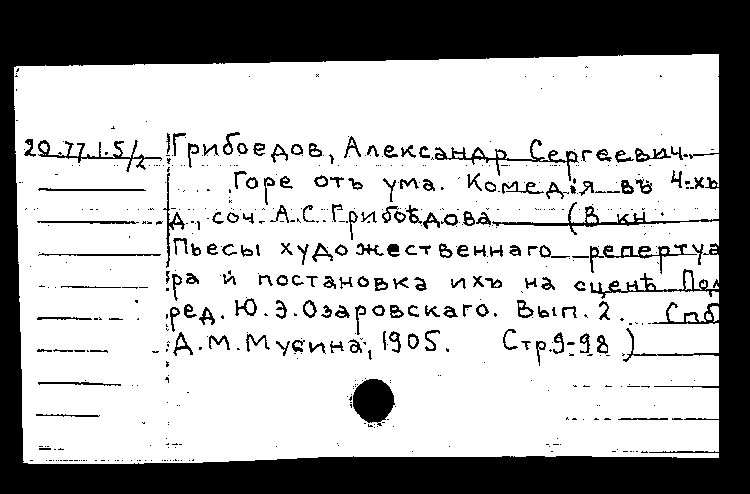 20.77.1.5/2 Грибоедов, Александр Сергеевич.
Горе отъ ума. Комедія въ 4-хъ
д., соч. А.С. Грибоѣдова (В кн.
Пьесы художественнаго репертуа
ра и постановка ихъ на сценѣ Под
ред. Ю.Э. Озаровскаго. Вып. 2. Спб
Д.М. Мусина, 1905. Стр. 9-98)